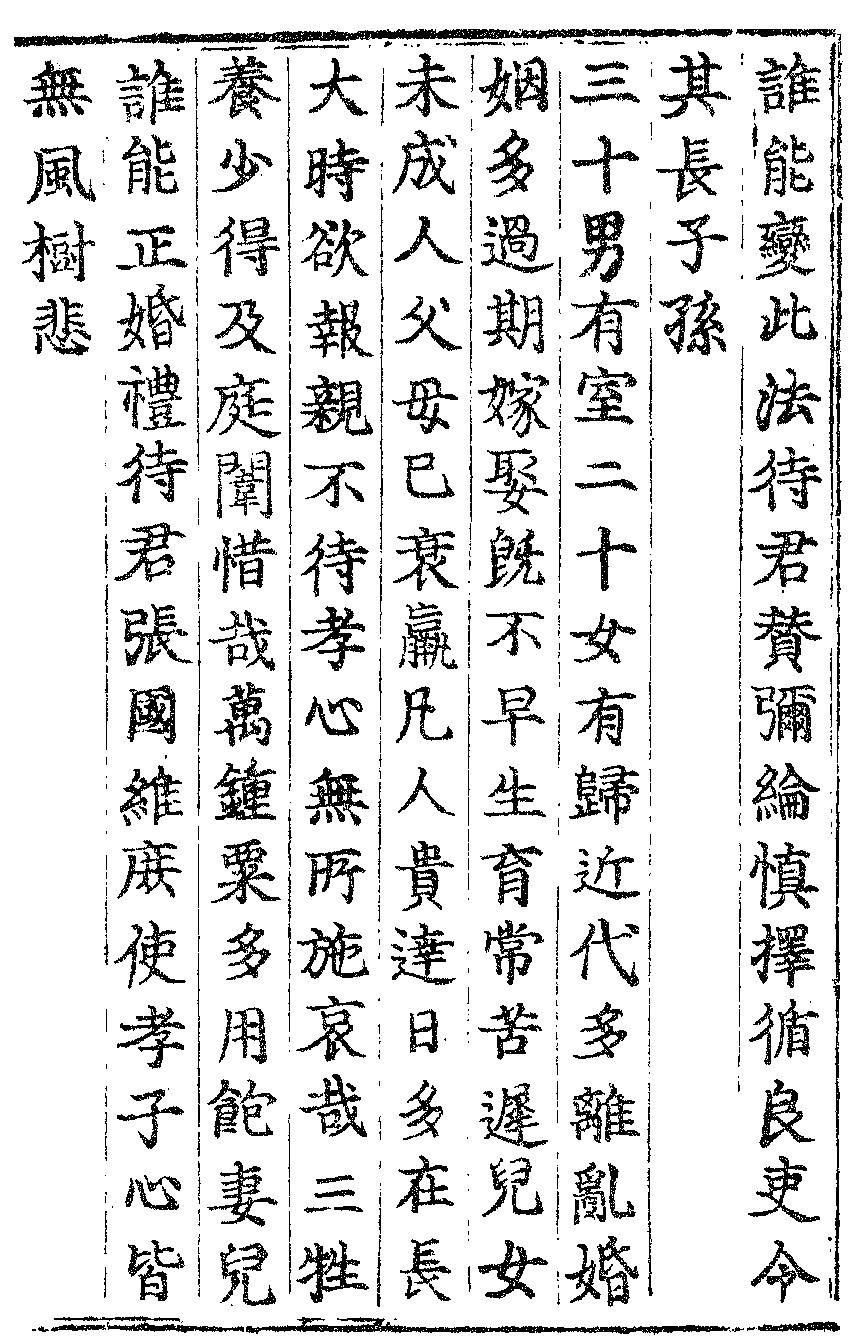 誰能變此法待君贊彌綸慎擇循良吏令
其長子孫
三十男有室二十女有歸近代多離亂婚
姻多過期嫁娶既不早生育常苦遲兒女
未成人父母已衰羸凡人貴達日多在長
大時欲報親不待孝心無所施哀哉三牲
養少得及庭闈惜哉萬鍾粟多用飽妻兒
誰能正婚禮待君張國維庶使孝子心皆
無風樹悲